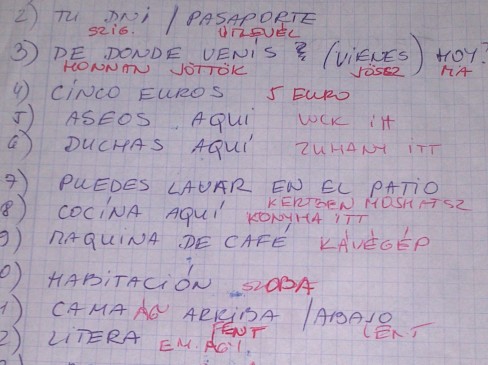 2) TU DNI / PASAPORTE
SZIG. ÚTLEVÉL
3) DE DONDE VENÍS ? (VIENES) HOY?
HONNAN JÖTTÖK JÖSSZ MA
4) CINCO EUROS 5 EURO
5) ASEOS AQUÍ WCK ITT
6) DUCHAS AQUÍ ZUHANY ITT
7) PUEDES LAVAR EN EL PATIO
KERTBEN MOSHATSZ
8) COCÍNA AQUÍ KONYHA ITT
9) MAQUINA DE CAFÉ KÁVÉGÉP
0) HABITACIÓN SZOBA
1) CAMA ÁGY ARRIBA / ABAJO
FENT LENT
2) LITERA EM. ÁGY